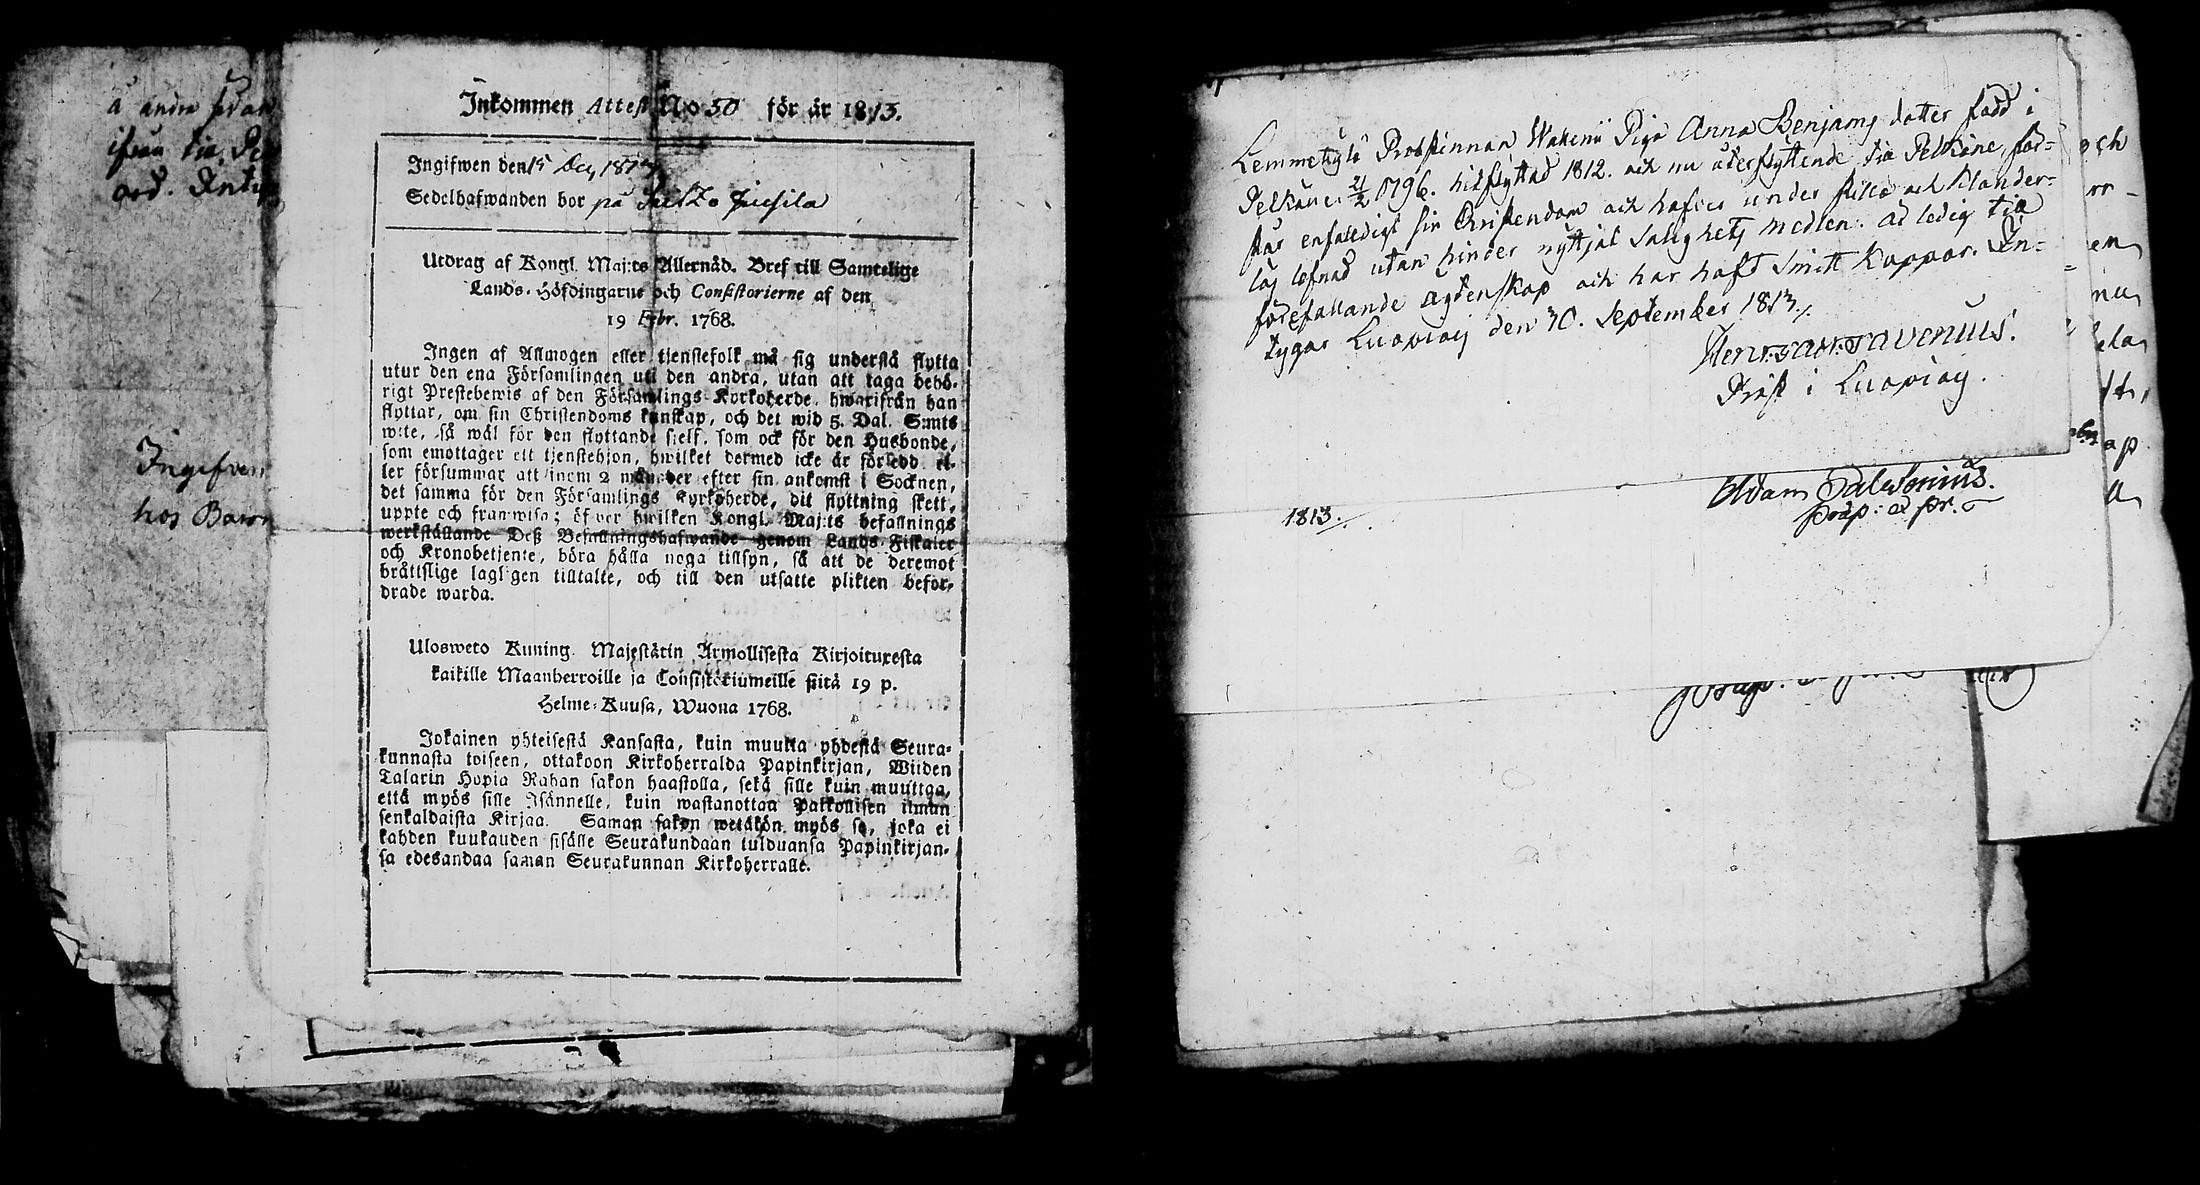 å andra sidan
ifrån til
ord.
Ingifven
hos Baron
Inkommen Attest No 50 för år 1813.
Ingifwen den 15 Dec 1813
Sedelhafwanden bor på
Utdrag af Kongl. Maj:ts Allernåd. Bref till Samtelige
Lands-Höfdingarne och Consistorierne af den
19 Febr. 1768.
Ingen af Allmogen eller tjenstefolk må sig understå flytta
utur den ena Församlingen uti den andra, utan att taga behö-
rigt Prestebewis af den Församlings Kyrkoherde, hwarifrån han
flyttar, om sin Christendoms kunskap, och det wid 5. Dal. S:mts
wite, så wäl för den flyttande sielf, som ock för den Husbonde,
som emottager ett tjenstehjon, hwilket dermed icke är försedd el-
ler försummar att inom 2 månader efter sin ankomst i Socknen,
det samma för den Församlings Kyrkoherde, dit flyttning skett,
uppte och framwisa; öfwer hwilken Kongl. Maj:ts befallnings
werkställande Deß Befallningshafwande genom Lands-Fiskaler
och Kronobetjente, böra hålla noga tillsyn, så att de deremot
bråttslige lagligen tilltalte, och till den utsatte plikten befor-
drade warda.
Ulosweto Kuning. Majestätin Armollisesta Kirjoituxesta
kaikille Maanherroille ja Consistoriumeille siitä 19 p.
Helme-Kuusa, Wuona 1768.
Jokainen yhteisestä Kansasta, kuin muutta yhdestä Seura-
kunnasta toiseen, ottakoon Kirkoherralda Papinkirjan, Wiiden
Talarin Hopia Rahan sakon haastolla, sekä sille kuin muuttaa,
että myös sille Isännelle, kuin wastanottaa Palkollisen ilman
senkaldaista Kirjaa. Saman sakon wetäkön myös se, joka ei
kahden kuukauden sisälle Seurakundaan tulduansa Papinkirjan-
sa edesandaa saman Seurakunnan Kirkoherralle.
Lemmetylä Prostinnan Pigo Anna Benjams dotter född i
Pelkäne 21/2 1796. hitflyttad 1812. och nu återflyttande til Pelkäne, för-
står enfaldigt sin Christendom och hafver under stilla och Klander-
lös lefnad utan hinder nyttjat Salighets medlen. Är ledig til
förefallande ägtenskap och har haft Smitt Koppor. In-
tygar Luopiois den 30. September 1813.
Henr. Gabr. Pavenius.
Präst i Luopiois.
1813.
Adam
prap: a pr.
och
en
nu